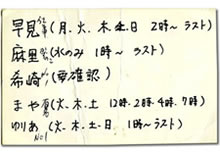 早見(月、火、木土日 2時～ラスト)
麻里(水のみ 1時～ラスト)
希崎(要確認)
まや(火、木、土 12時、2時、4時、7時)
ゆりあ(火、木、土、日、1時～ラスト)
No1